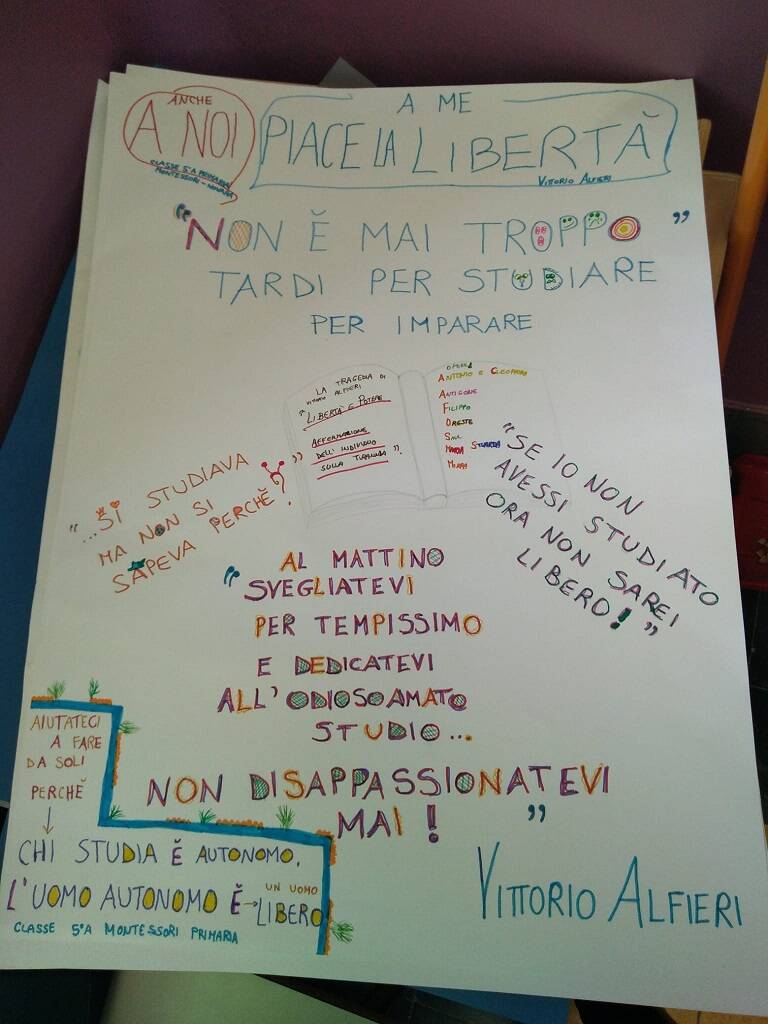 ANCHE
A NOI
CLASSE 5ªA PRIMARIA
MONTESSORI - NOVARA
A ME
PIACE LA LIBERTĂ
VITTORIO ALFIERI
"NON Ĕ MAI TROPPO"
TARDI PER STUDIARE
PER IMPARARE
LA TRAGEDIA DI
VITTORIO ALFIERI
"LIBERTĂ E POTERE
AFFERMAZIONE
DELL'INDIVIDUO
SULLA TIRANNIDE".
OPERE
ANTONIO E CLEOPATRA
ANTIGONE
FILIPPO
ORESTE
SAUL
MARIA STUARDA
MIRRA
"...SI STUDIAVA
MA NON SI
SAPEVA PERCHĔ?"
"SE IO NON
AVESSI STUDIATO
ORA NON SAREI
LIBERO!"
AL MATTINO
"SVEGLIATEVI
PER TEMPISSIMO
E DEDICATEVI
ALL'ODIOSOAMATO
STUDIO...
NON DISAPPASSIONATEVI
MAI! "
AIUTATECI
A FARE
DA SOLI
PERCHĔ
↓
CHI STUDIA Ĕ AUTONOMO.
L'UOMO AUTONOMO Ĕ → UN UOMO
LIBERO!
CLASSE 5ªA MONTESSORI PRIMARIA
VITTORIO ALFIERI